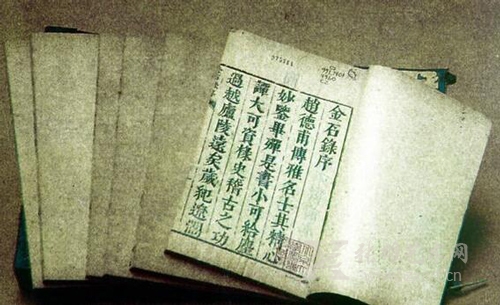 金石錄序
趙德甫博雅名士其精心
妙鑒畢殫是書小可給麈
譚大可資 史稽古之功
過越廬陵遠矣歲犯遼
网
.cn